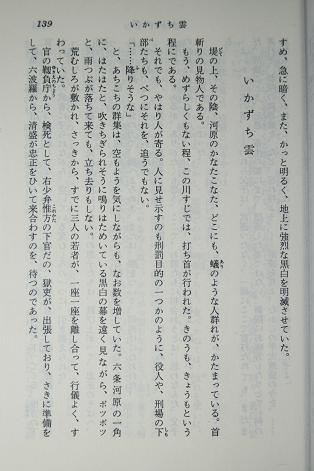 139 いかずち雲
すめ、急に暗く、また、かっと明るく、地上に強烈な黒白を明滅させていた。
いかずち雲
堤の上、その陰、河原のかなたこなた、どこにも、蟻のような人群れが、かたまっている。首
斬りの見物人である。
もう、めずらしくもない程、この川すじでは、打ち首が行われた。きのうも、きょうもという
程にである。
それでも、やはり人が寄る。人に見せ示すのも刑罰目的の一つかのように、役人や、刑場の下
部たちも、べつにそれを、追うでもない。
「……降りそうな」
と、あちこちの群集は、空もようを気にしながらも、なお数を増していた。六条河原の一角
に、はたはたと、吹きちぎられそうに鳴りはためいている黒白の幕を遠く見ながら、ポツポツ
と、雨つぶが落ちて来ても、立ち去りもしない。
荒むしろが敷かれ、さっきから、すでに三人の若者が、一座一座を離し合って、行儀よく、す
わっていた。
官の靱負庁から、検死として、右少弁惟方の下官だの、獄吏が、出張しており、さきに準備を
して、六波羅から、清盛が忠正をひいて来合わすのを、待つのであった。